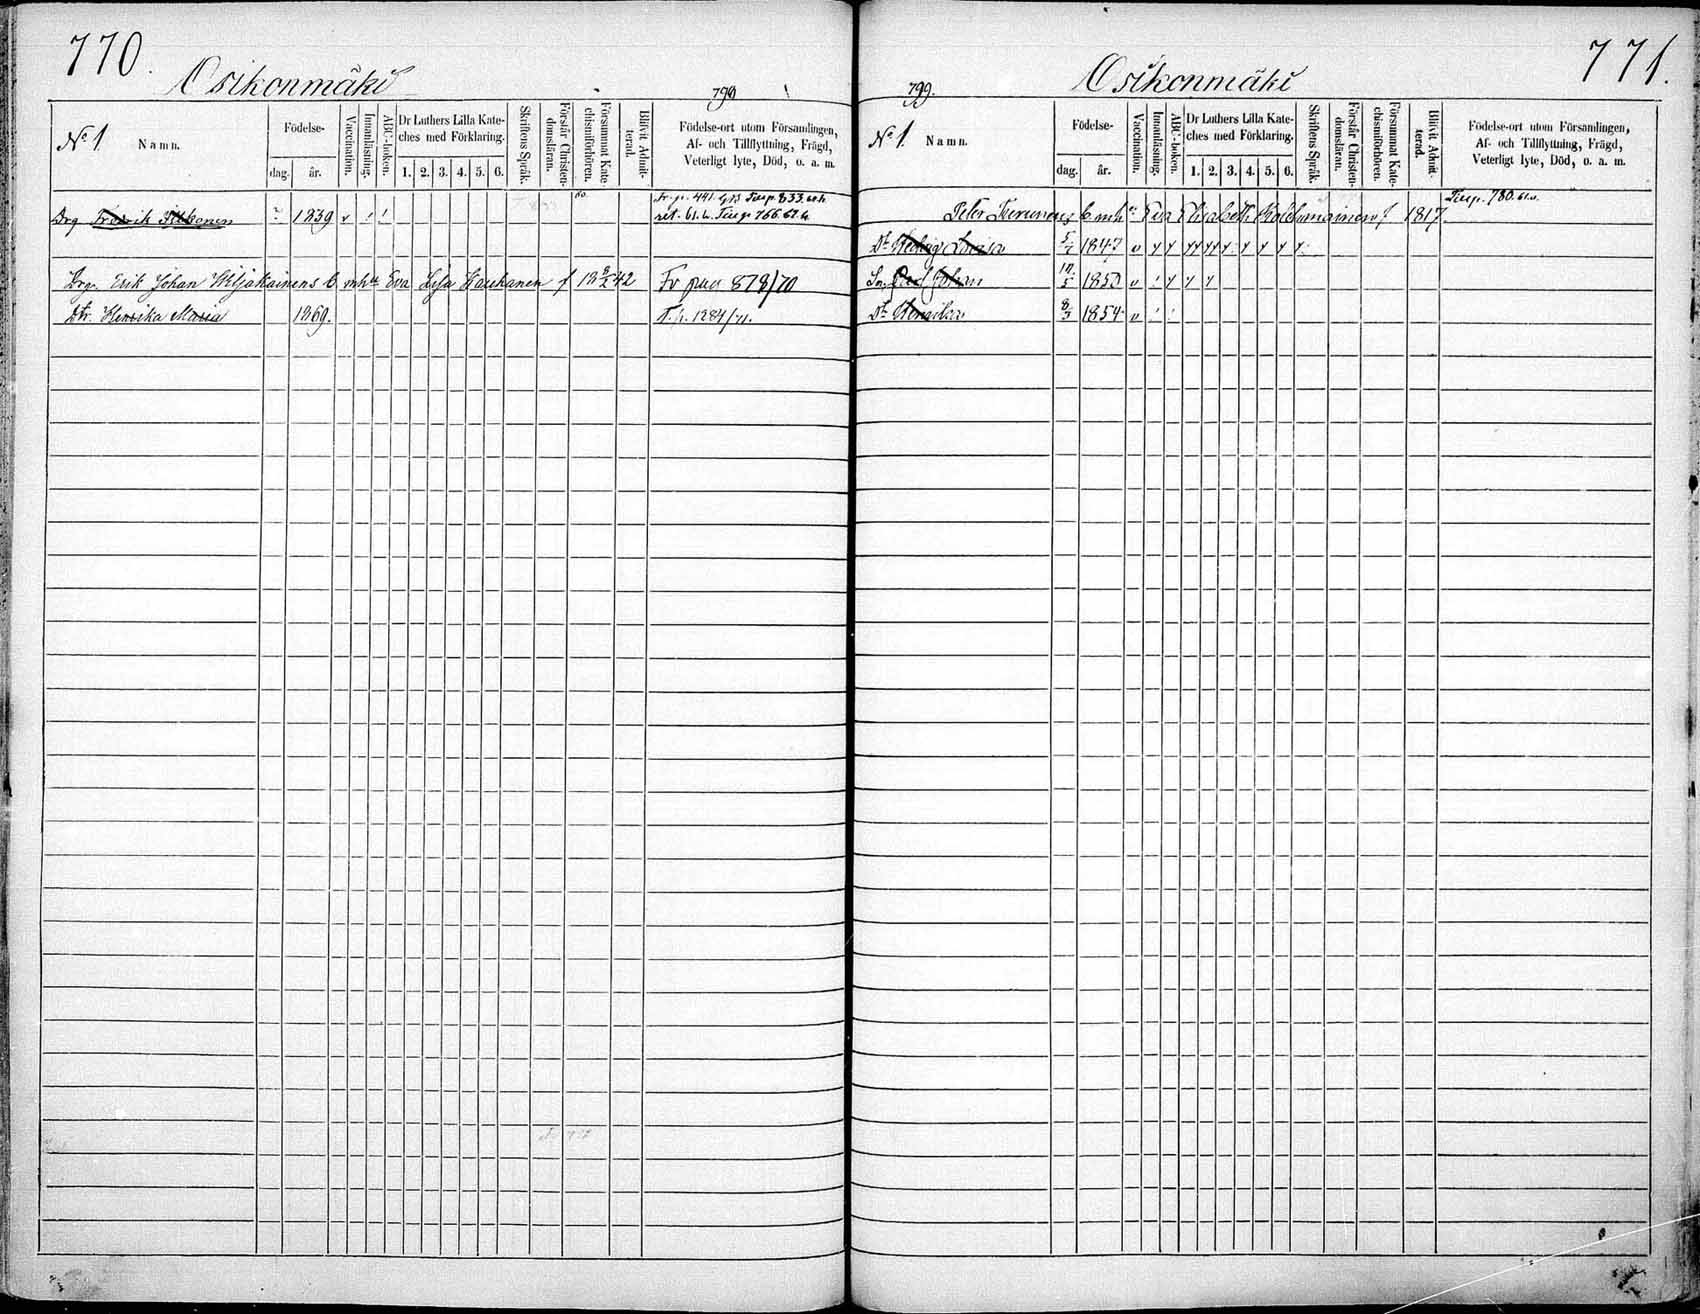 770.
Osikonmäki
N:o 1
Namn.
Födelse-
dag.
år.
Vaccination.
Innanläsning.
ABC-boken.
Dr Luthers Lilla Kate-
ches med Förklaring.
1. 2. 3. 4. 5. 6.
Skriftens Språk.
Förstår Christen-
domsläran.
Försummat Kate-
chismiförhören.
Blifvit Admit-
terad.
Födelse-ort utom Församlingen,
Af- och Tillflyttning, Frägd,
Veterligt lyte, Död, o. a. m.
Drg Fredrik 1839 v ! !
Drg. Erik Johan Wiljakainens E. mh Eva Lisa Haukanen f 18 8/2 42 Fr pag 878/70
Dtr. Henrika Maria 1869. T. p. 1284/71.
771.
799.
Osikonmäki
N:o 1.
Namn.
Födelse-
dag.
år.
Vaccination.
Innanläsning.
ABC-boken.
Dr Luthers Lilla Kate-
ches med Förklaring.
1. 2. 3. 4. 5. 6.
Skriftens Språk.
Förstår Christen-
domsläran.
Försummat Kate-
chismiförhören.
Blifvit Admit-
terad.
Födelse-ort utom Församlingen,
Af- och Tillflyttning, Frägd,
Veterligt lyte, Död, o. a. m.
Peter Turunens E. mh Eva Elisabeth f 1817.
Dr Hedvig Lovisa 5/7 1847 v
Sn Johan 1850 v
Dr Henrika 8/3 1854 v ! !